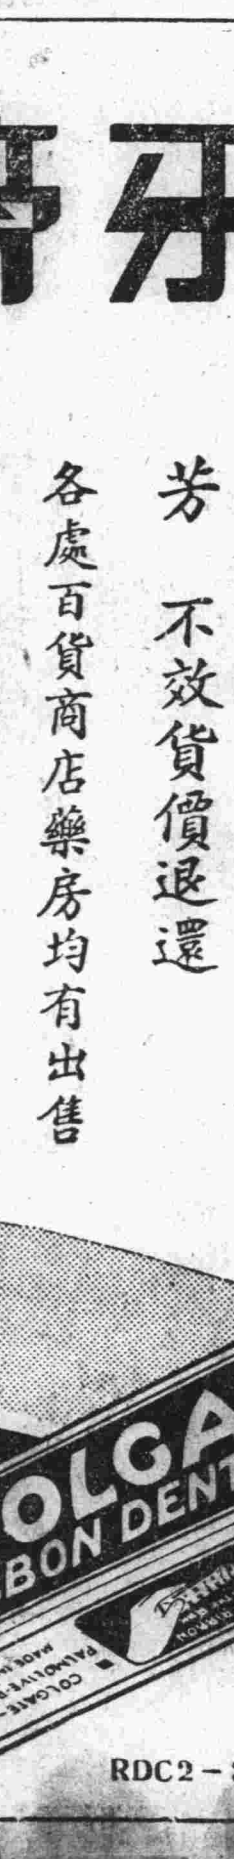 牙
芳 不效貨價退還
各處百貨商店藥房均有出售
OLGA
BON DENT
COLGATE
PALMOLIVE
MADE
RDC2-